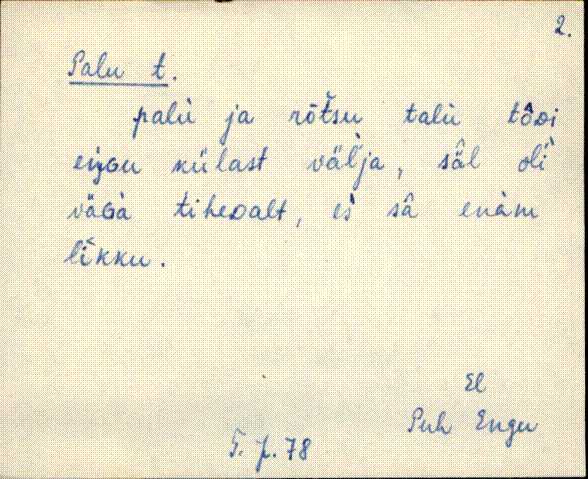 2.
Palu t.
palù ja rōt̆su talù tôᴅi
eiŋɢu külast väl̆ja, sâl olì
väɢà tiheᴅalt, eì sâ enàm
lìkku.
El
Puh Engu
T. p. 78